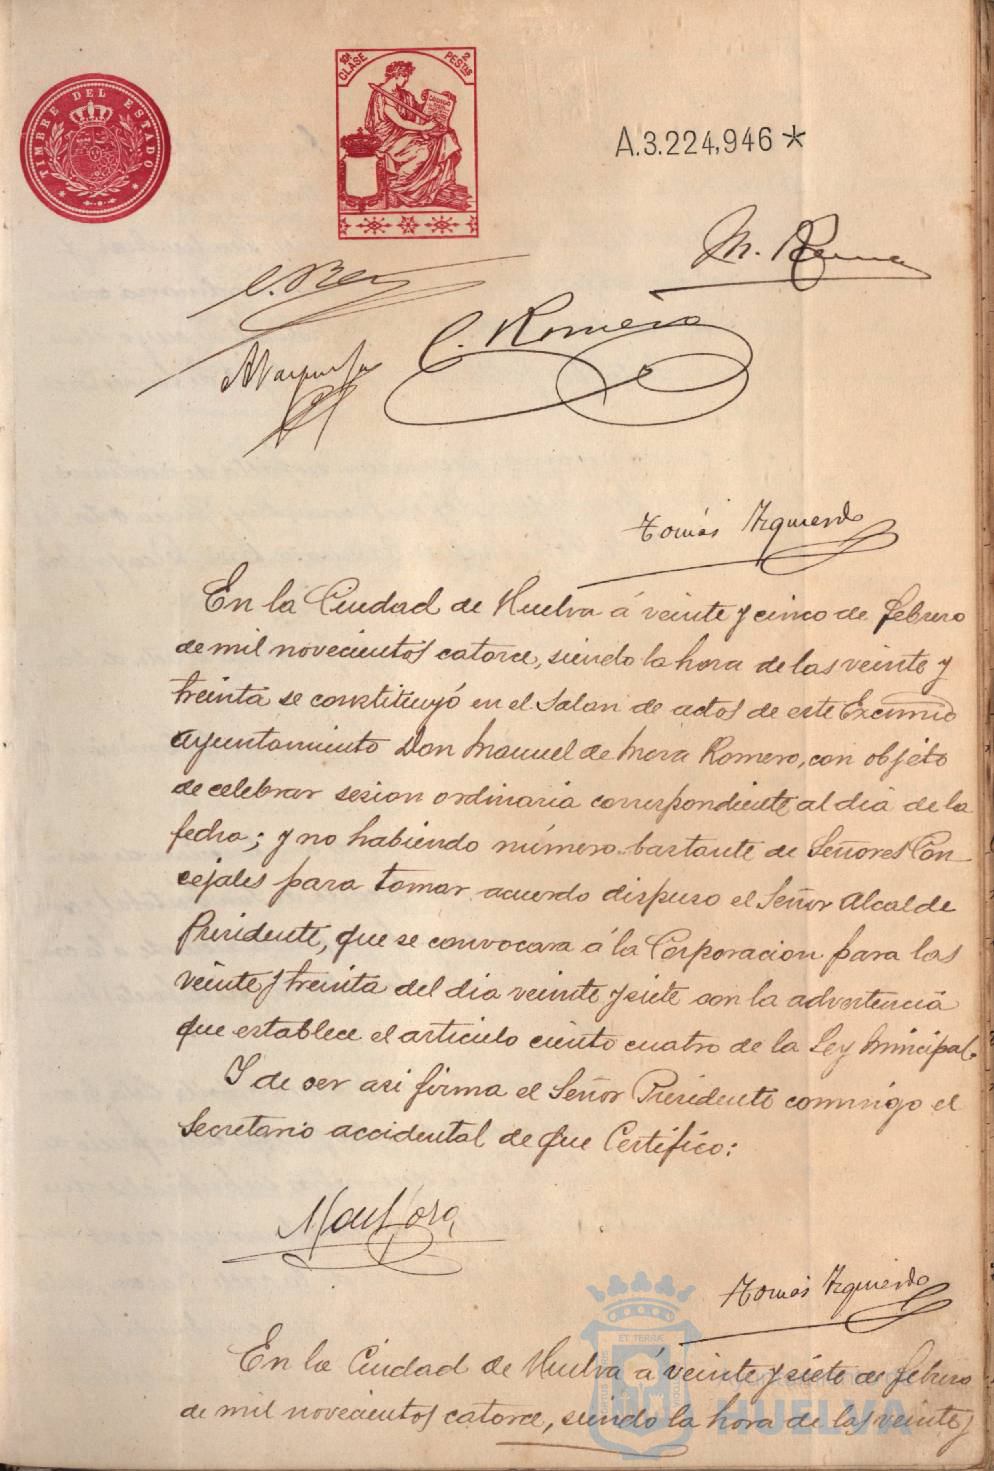 TIMBRE DEL ESTADO
10ª CLASE 2 PESTAS
A.3.224,946*
M.
C. Rey
C. Romero
A Vazquez
Tomás Izquierdo
En la Ciudad de Huelva á veinte y cinco de febrero
de mil novecientos catorce, siendo la hora de las veinte y
treinta se constituyó en el Salon de actos de este Excmo
Ayuntamiento Don Manuel de Mora Romero, con objeto
de celebrar sesion ordinaria correspondiente al dia de la
fecha; y no habiendo número bastante de Señores Con
cejales para tomar acuerdo dispuso el Señor Alcalde
Presidente, que se convocara á la Corporacion para las
veinte y treinta del dia veinte y siete con la advertencia
que establece el articulo ciento cuatro de la Ley Municipal.
Y de ser asi firma el Señor Presidente conmigo el
Secretario accidental de que Certifico:
Man Mora
Tomás Izquierdo
En la Ciudad de Huelva á veinte y siete de febrero
de mil novecientos catorce, siendo la hora de las veinte y
HUELVA